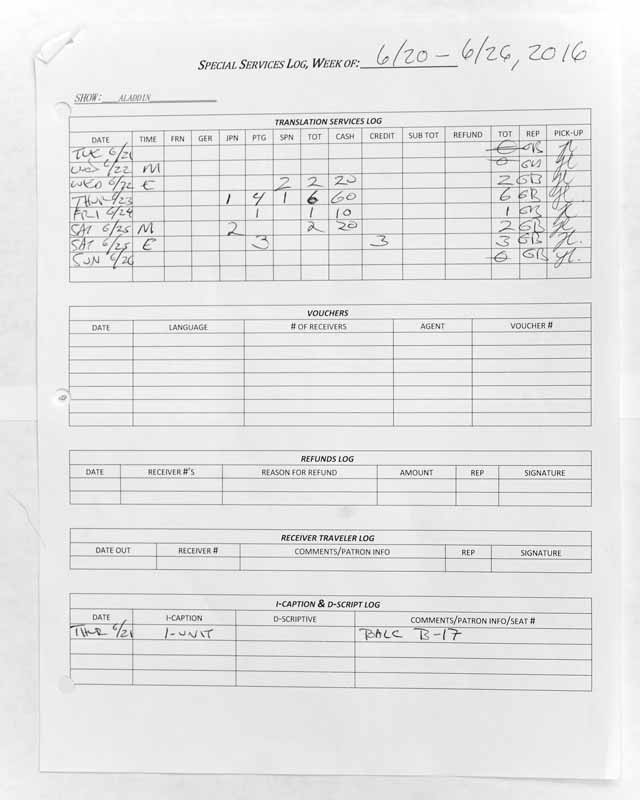 SPECIAL SERVICES LOG, WEEK OF: 6/20 – 6/26, 2016
SHOW: ALADDIN
TRANSLATION SERVICES LOG
DATE TIME FRN GER JPN PTG SPN TOT CASH CREDIT SUB TOT REFUND TOT REP PICK-UP
TUE 6/21 0 GB
WED 6/22 M 0 GB
WED 6/22 E 2 2 20 2 GB
THUR 6/23 1 4 1 6 60 6 GB
FRI 6/24 1 1 10 1 GB
SAT 6/25 M 2 2 20 2 GB
SAT 6/25 E 3 3 3 GB
SUN 6/26 0 GB
VOUCHERS
DATE LANGUAGE # OF RECEIVERS AGENT VOUCHER #
REFUNDS LOG
DATE RECEIVER #'S REASON FOR REFUND AMOUNT REP SIGNATURE
RECEIVER TRAVELER LOG
DATE OUT RECEIVER # COMMENTS/PATRON INFO REP SIGNATURE
I-CAPTION & D-SCRIPT LOG
DATE I-CAPTION D-SCRIPTIVE COMMENTS/PATRON INFO/SEAT #
THUR 6/21 1-UNIT BALC B-17